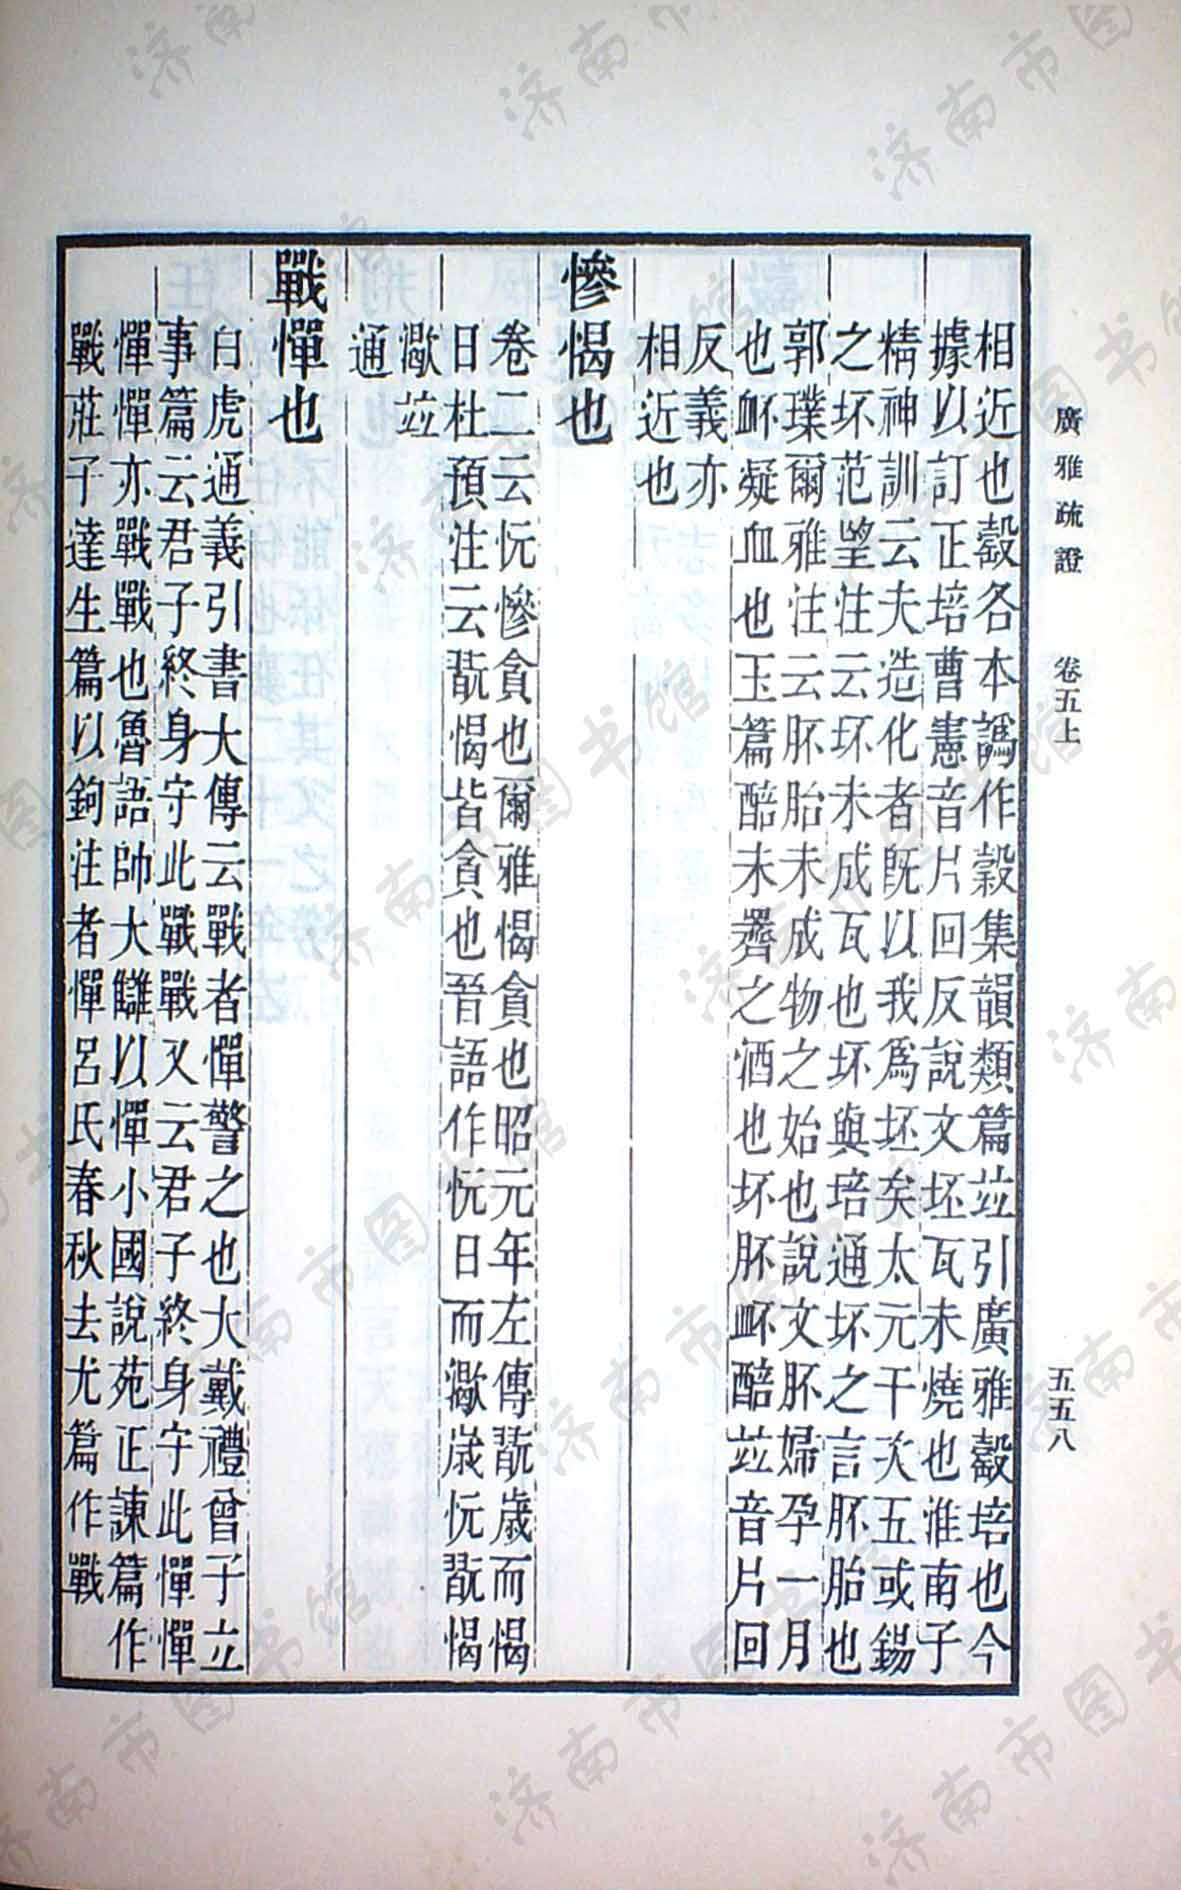 廣雅疏證　卷五上　五五八
相近也㲉各本譌作穀集韻類篇竝引廣雅㲉培也今
據以訂正培曹憲音片回反說文坯瓦未燒也淮南子
精神訓云夫造化者旣以我爲坯矣太元干次五或錫
之坏范望注云坏未成瓦也坏與培通坏之言胚胎也
郭璞爾雅注云胚胎未成物之始也說文胚婦孕一月
也衃凝血也玉篇醅未䉶之酒也坏胚衃醅竝音片回
反義亦
相近也
慘愒也
卷二云忨慘貪也爾雅愒貪也昭元年左傳翫歲而愒
日杜預注云翫愒皆貪也晉語作忨日而㵣歲忨翫愒
㵣竝
通
戰憚也
白虎通義引書大傳云戰者憚警之也大戴禮曾子立
事篇云君子終身守此戰戰又云君子終身守此憚憚
憚憚亦戰戰也魯語帥大讎以憚小國說苑正諫篇作
戰莊子達生篇以鉤注者憚呂氏春秋去尤篇作戰